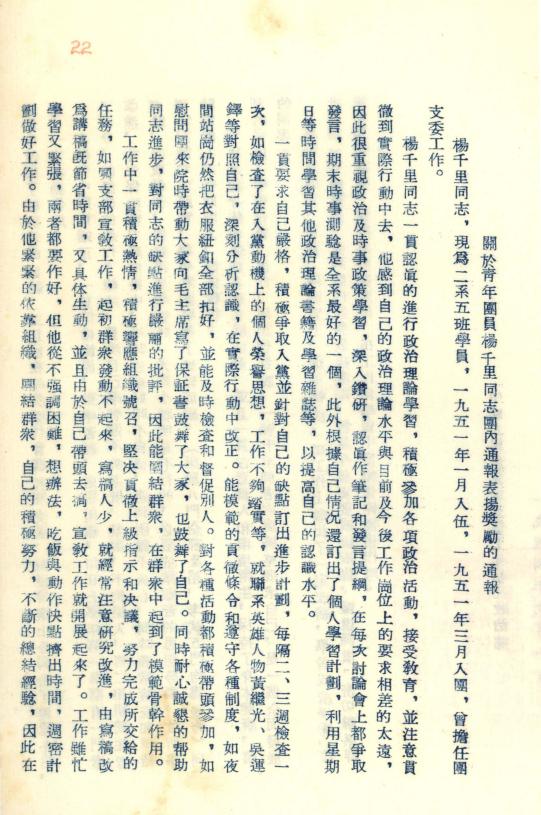 22
關於青年團員楊千里同志團內通報表揚獎勵的通報
楊千里同志，現為二系五班學員，一九五一年一月入伍，一九五一年三月入團，曾擔任團
支委工作。
楊千里同志一貫認真的進行政治理論學習，積極參加各項政治活動，接受教育，並注意貫
徹到實際行動中去，他感到自己的政治理論水平與目前及今後工作崗位上的要求相差的太遠，
因此很重視政治及時事政策學習，深入鑽研，認真作筆記和發言提綱，在每次討論會上都爭取
發言，期末時事測驗是全系最好的一個，此外根據自己情況還訂出了個人學習計劃，利用星期
日等時間學習其他政治理論書籍及學習雜誌等，以提高自己的認識水平。
一貫要求自己嚴格，積極爭取入黨並針對自己的缺點訂出進步計劃，每隔二、三週檢查一
次，如檢查了在入黨動機上的個人榮譽思想，工作不夠踏實等，就聯系英雄人物黃繼光、吳運
鐸等對照自己，深刻分析認識，在實際行動中改正。能模範的貫徹條令和遵守各種制度，如夜
間站崗仍然把衣服紐釦全部扣好，並能及時檢查和督促別人。對各種活動都積極帶頭參加，如
慰問團來院時帶動大家向毛主席寫了保証書鼓舞了大家，也鼓舞了自己。同時耐心誠懇的幫助
同志進步，對同志的缺點進行嚴肅的批評，因此能團結群衆，在群衆中起到了模範骨幹作用。
工作中一貫積極熱情，積極響應組織號召，堅决貫徹上級指示和决議，努力完成所交給的
任務，如團支部宣教工作，起初群衆發動不起來，寫稿人少，就經常注意研究改進，由寫稿改
為講稿旣節省時間，又具体生動，並且由於自己帶頭去搞，宣教工作就開展起來了。工作雖忙
學習又緊張，兩者都要作好，但他從不强調困難，想辦法，吃飯與動作快點擠出時間，週密計
劃做好工作。由於他緊緊的依靠組織，團結群衆，自己的積極努力，不斷的總結經驗，因此在